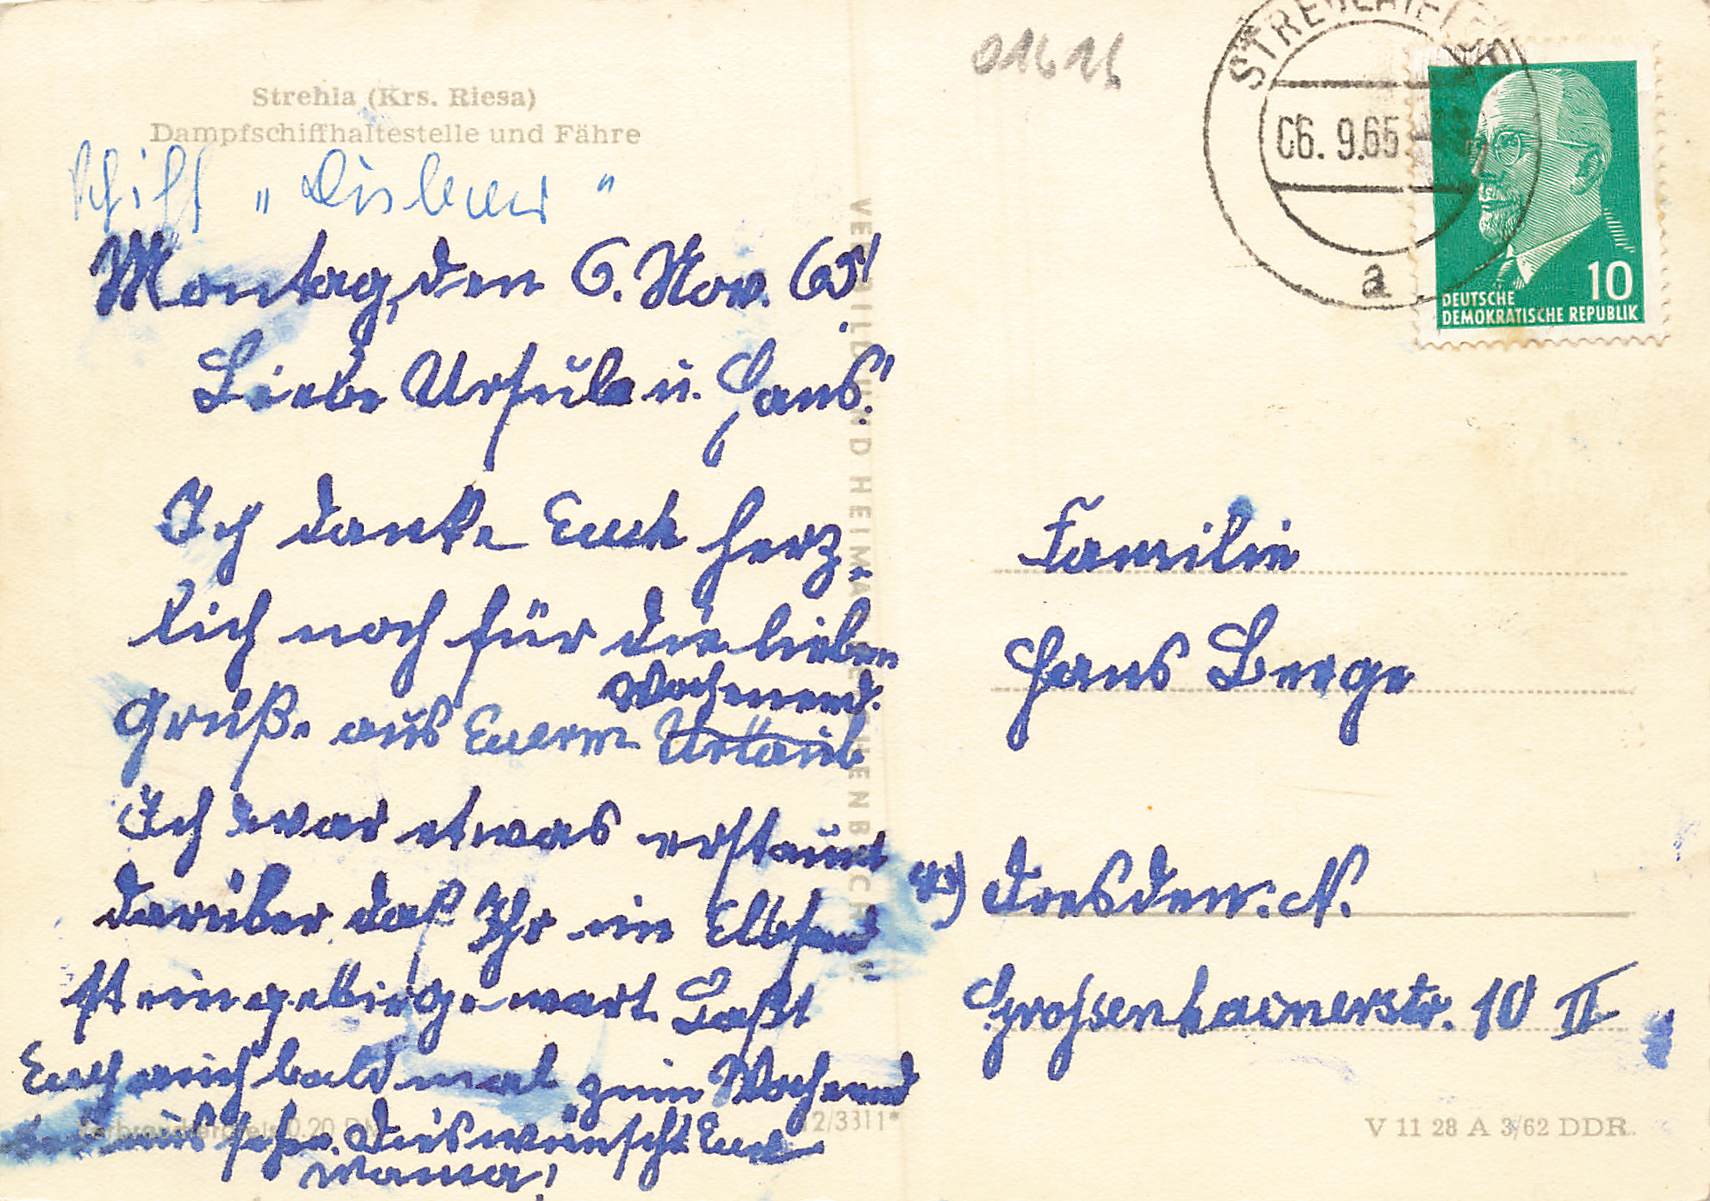 Strehla (Krs. Riesa)
Dampfschiffhaltestelle und Fähre
Schiff „ "
Montag, den 6. Nov. 65!
Liebe Ursula u. Hans!
Ich danke Euch herz-
lich noch für die lieben
Wochenend.
Grüße aus Eurem Urlaub
Ich war etwas erstaunt
darüber daß Ihr im Elbsand
steingebirge wart. Laßt
Euch auch bald mal zum Wochenend
bei uns sehn. Dies wünscht Eure
Mama!
VERLAG BILD UND HEIMAT REICHENBACH
12/3311*
01616
STREHLA (ELBE)
06. 9.65
a
10
DEUTSCHE
DEMOKRATISCHE REPUBLIK
Familie
Hans Berge
Dresden. N.
Grossenhainerstr. 10 II
V 11 28 A 3/62 DDR.